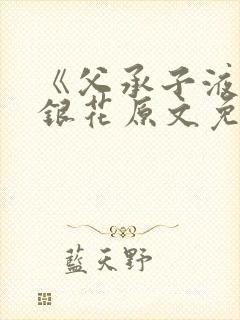 《父承子液
銀花原文免
藍天野